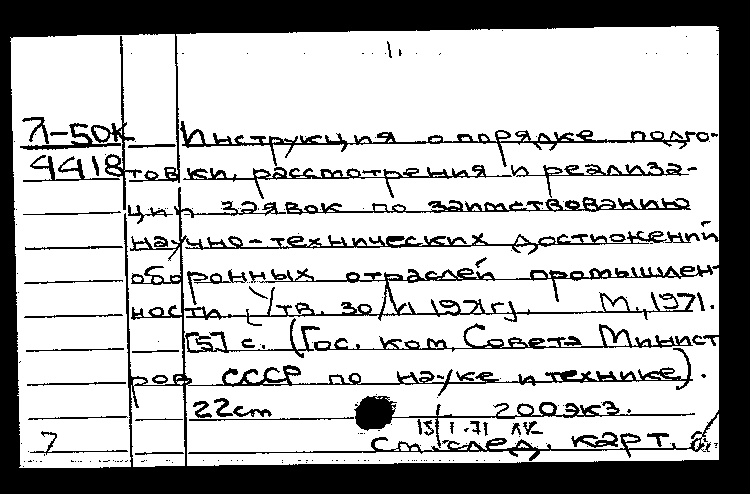 Л-50К Инструкция о порядке подго-
4418 товки, рассмотрения и реализа-
ции заявок по заимствованию
научно-технических достижений
оборонных отраслей промышлен-
ности. [Утв. 30/VI 1971г]. М., 1971.
[5] с. (Гос. ком. Совета Минист
ров СССР по науке и технике).
22см 200экз.
7 см. след. карт.